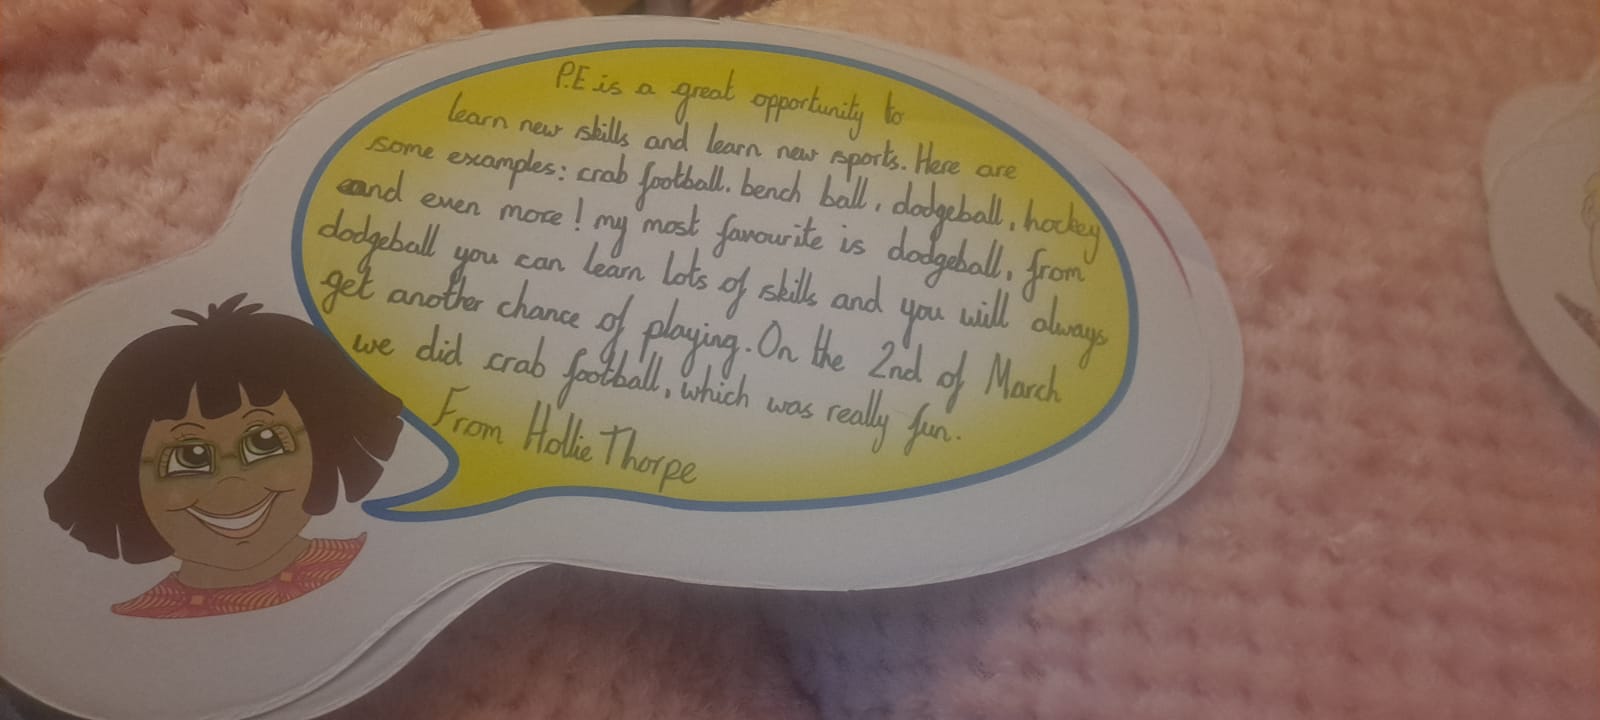 P.E is a great opportunity to
learn new skills and learn new sports. Here are
some examples: crab football, bench ball, dodgeball, hockey
and even more! my most favourite is dodgeball, from
dodgeball you can learn lots of skills and you will always
get another chance of playing. On the 2nd of March
we did crab football, which was really fun.
From Hollie Thorpe